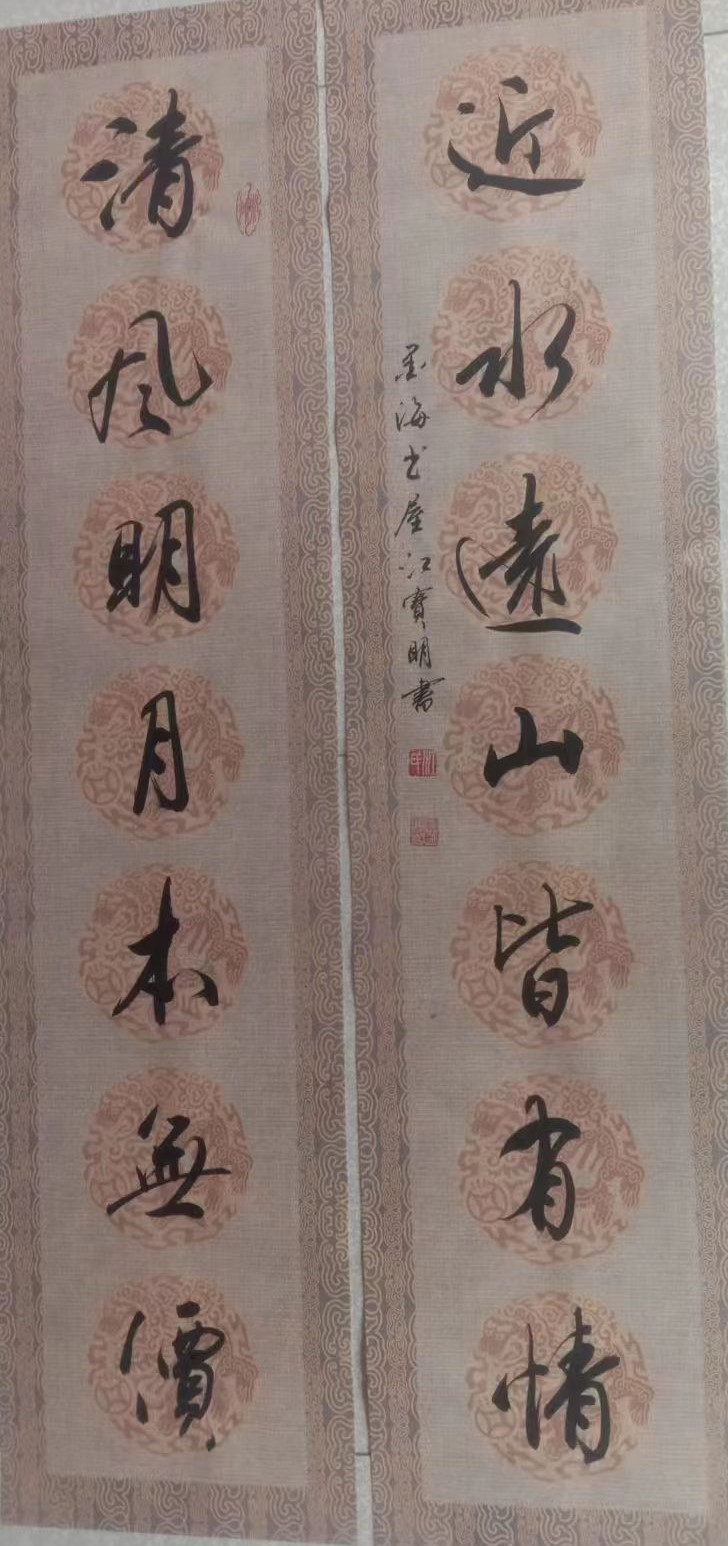 清风明月本無價
近水遠山皆有情
墨海书屋江寳明書